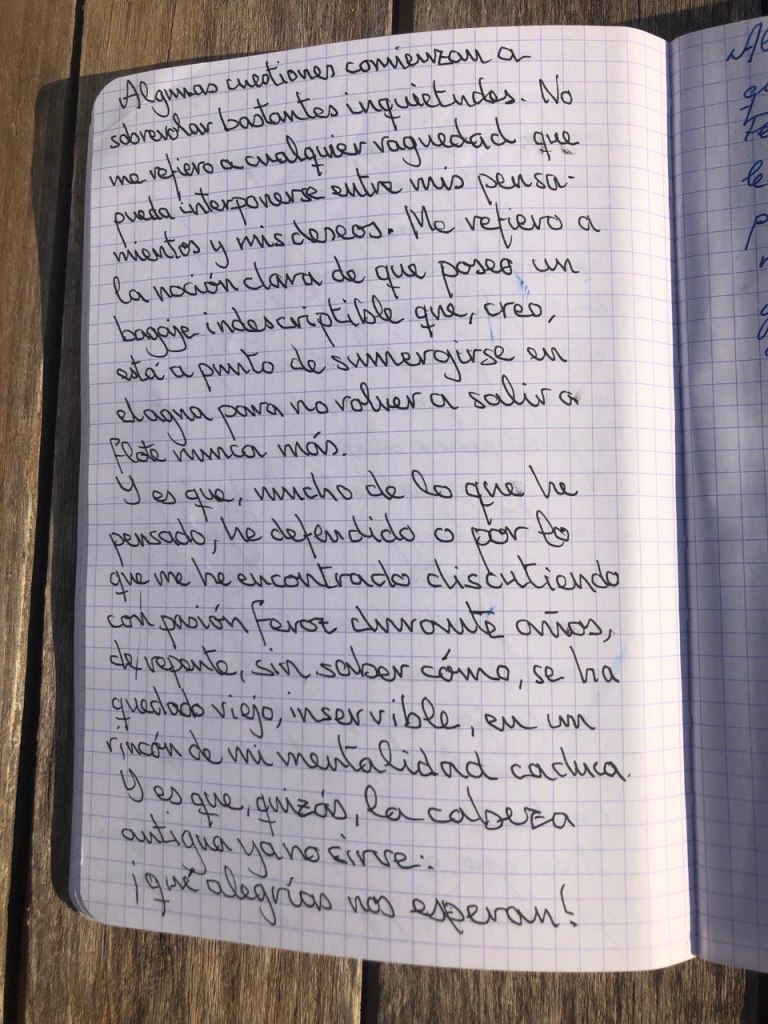 Algunas cuestiones comienzan a
sobrevolar bastantes inquietudes. No
me refiero a cualquier vaguedad que
pueda interponerse entre mis pensa-
mientos y mis deseos. Me refiero a
la noción clara de que poseo un
bagaje indescriptible que, creo,
está a punto de sumergirse en
el agua para no volver a salir a
flote nunca más.
Y es que, mucho de lo que he
pensado, he defendido o por lo
que me he encontrado discutiendo
con pasión feroz durante años,
de repente, sin saber cómo, se ha
quedado viejo, inservible, en un
rincón de mi mentalidad caduca.
Y es que, quizás, la cabeza
antigua ya no sirve:
¡qué alegrías nos esperan!